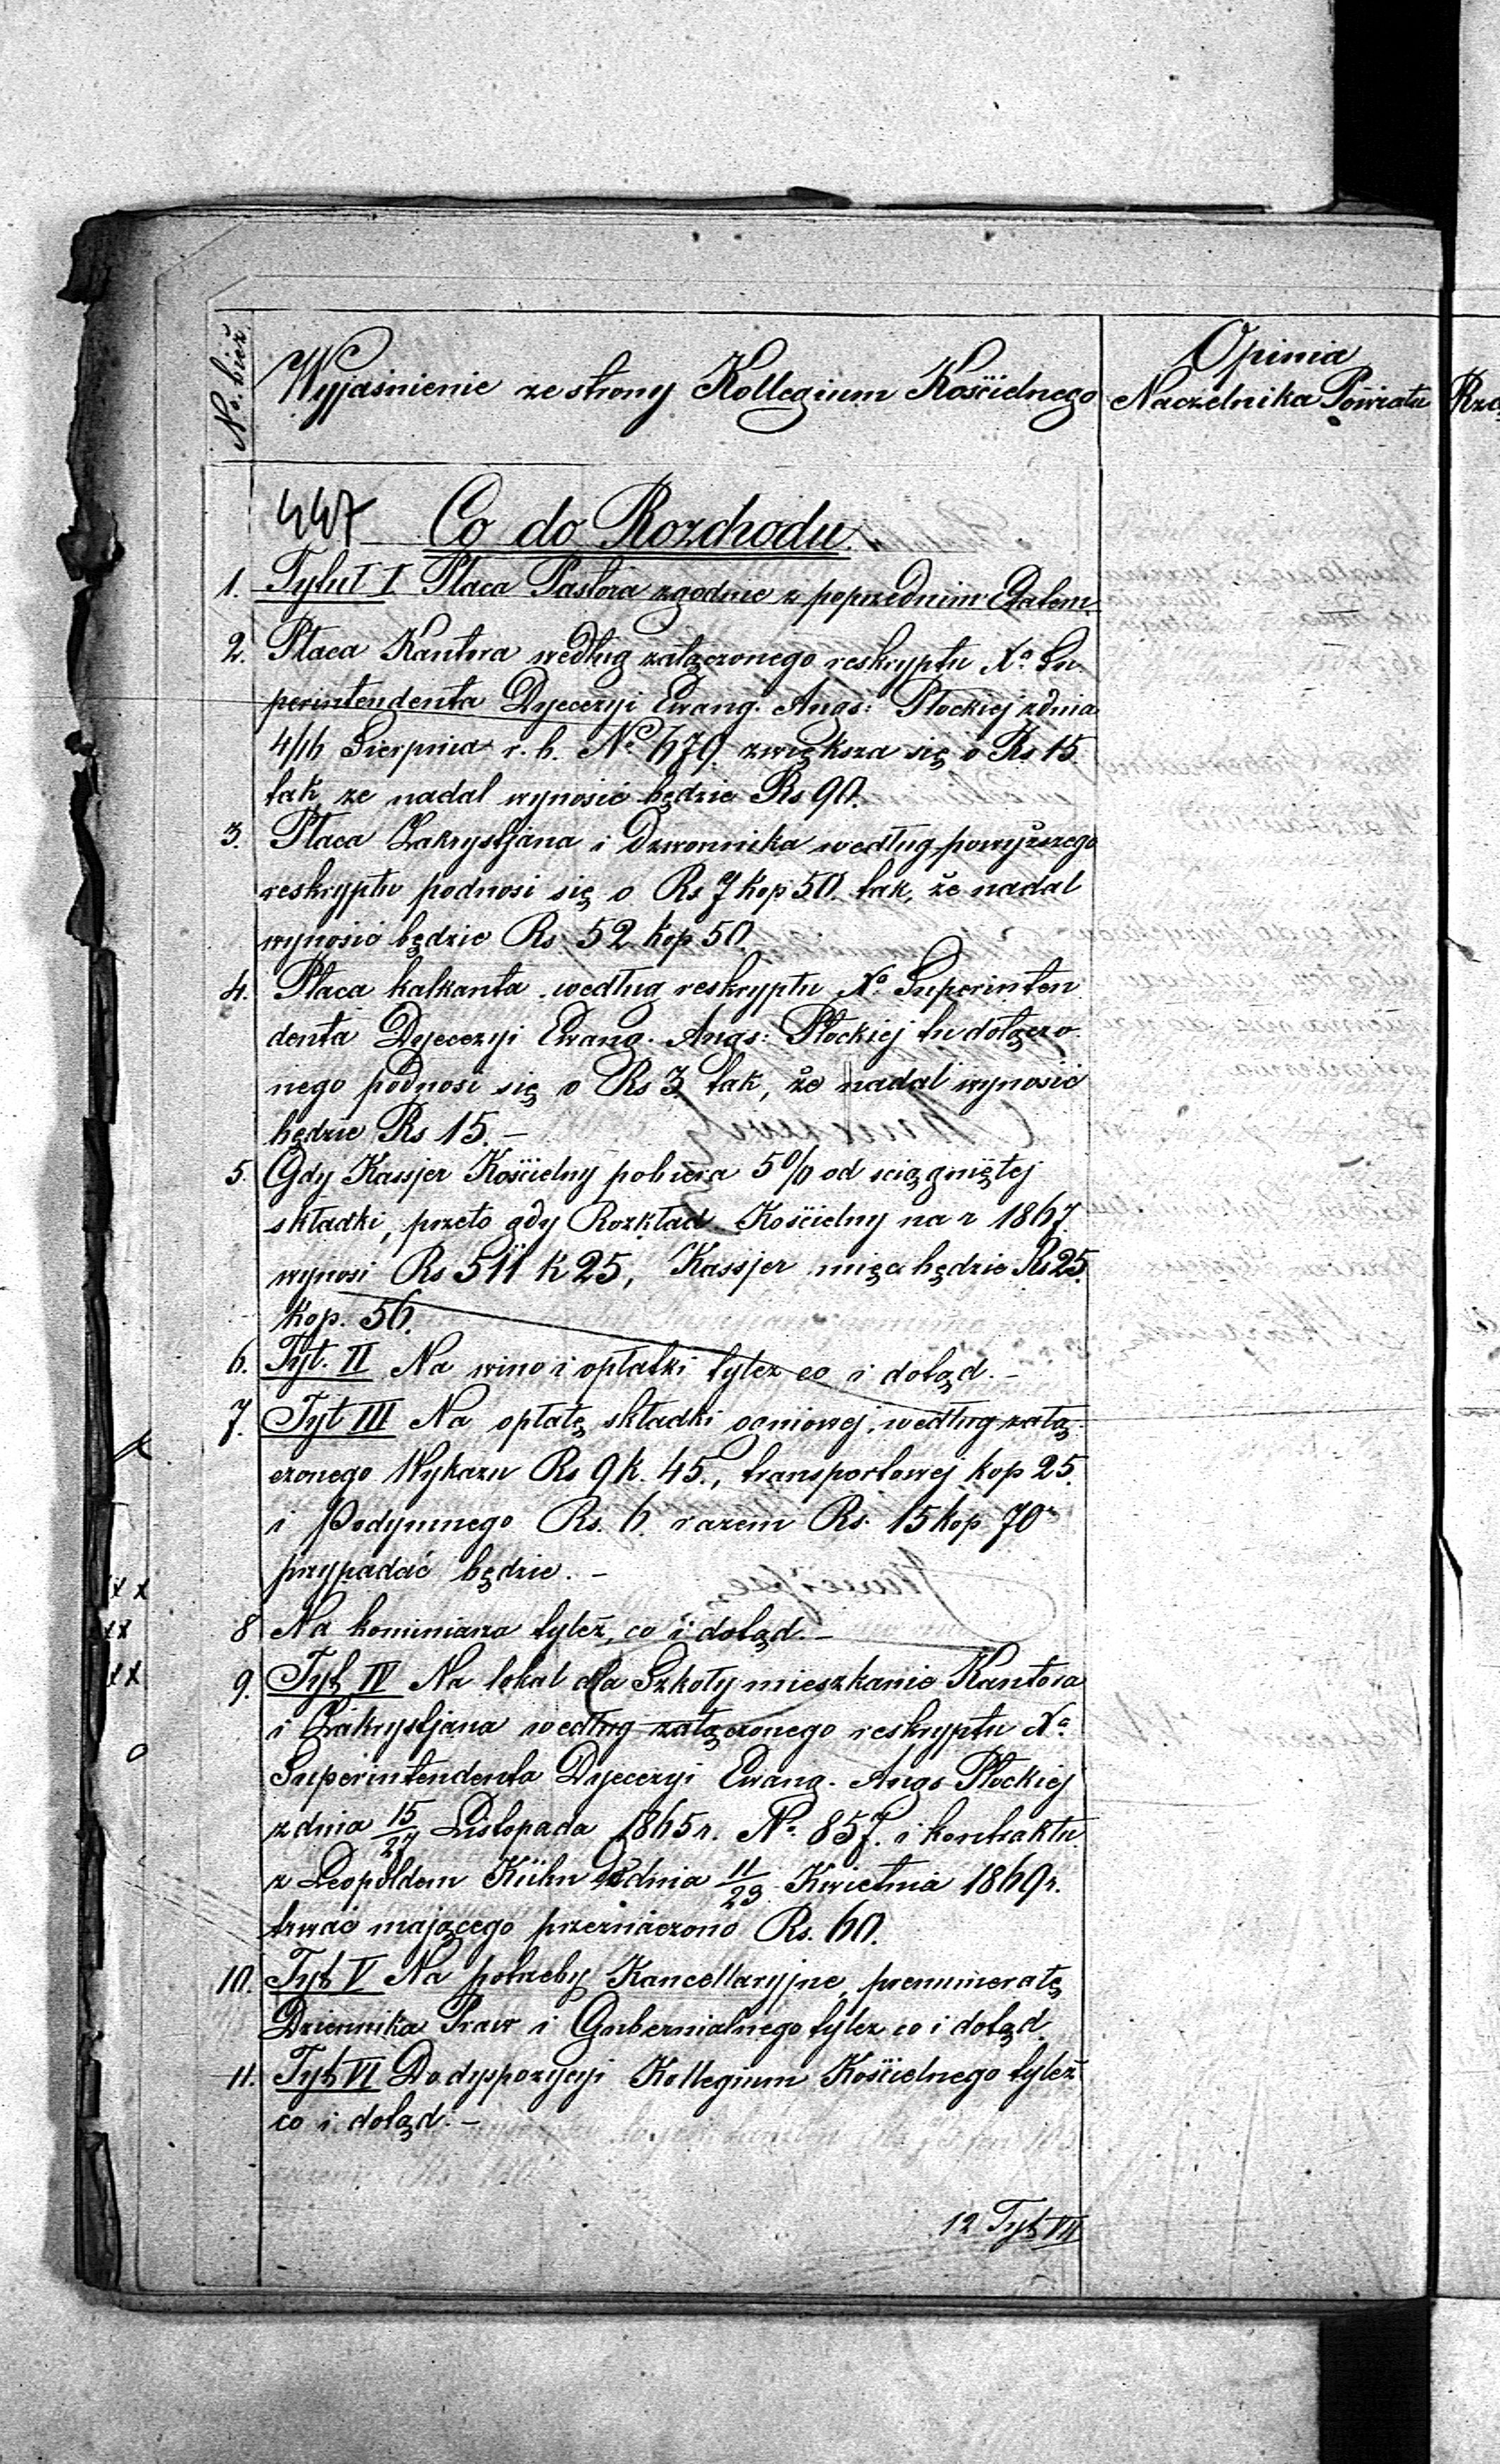 No. bież.
Wyjaśnienie ze strony Kollegium Kościelnego
Opinia
Naczelnika Powiatu
Rzą
447 Co do Rozchodu.
1. Tytuł I. Płaca Pastora zgodnie z poprzednim Etatem.
2. Płaca Kantora według załączonego reskryptu Xa Su-
perintendenta Dyecezyi Ewang. Augs: Płockiej z dnia
4/16 Sierpnia r. b. No 679. zwiększa się o Rs 15
tak, że nadal wynosić będzie Rs 90.
3. Płaca Zakrystjana i Dzwonnika według powyższego
reskryptu podnosi się o Rs 7 kop 50. tak, że nadal
wynosić będzie Rs. 52 kop 50.
4. Płaca kalkanta według reskryptu Xa Superinten
denta Dyecezyi Ewang. Augs: Płockiej tu dołączo-
nego podnosi się o Rs 3 tak, że nadal wynosić
będzie Rs 15. –
5. Gdy Kassjer Kościelny pobiera 5% od ściągniętej
składki, przeto gdy Rozkład Kościelny na r 1867.
wynosi Rs 511 k 25, Kassjer mięć będzie Rs 25.
kop. 56.
6. Tyt. II Na wino i opłatki tyleż co i dotąd. –
7. Tyt III Na opłatę składki ogniowej, według załą-
czonego Wykazu Rs 9 k. 45., transportowej kop 25.
i Podymnego Rs. 6. razem Rs. 15 kop 70
przypadać będzie. –
8 Na kominiarza tyleż, co i dotąd. –
9. Tyt IV Na lokal dla Szkoły mieszkanie Kantora
i Zakrystjana według załączonego reskryptu Xa
Superintendenta Dyecezyi Ewang. Augs Płockiej
z dnia 15/27 Listopada 1865 r. No 857. i kontraktu
z Leopoldem Kühn do dnia 11/23 Kwietnia 1869 r.
trwać mającego przeznaczono Rs. 60.
10. Tyt V Na potrzeby Kancellaryjne, prenumeratę
Dziennika Praw i Gubernialnego tyleż co i dotąd.
11. Tyt VI Do dyspozycyi Kollegium Kościelnego tyleż
co i dotąd. –
12 Tyt VII